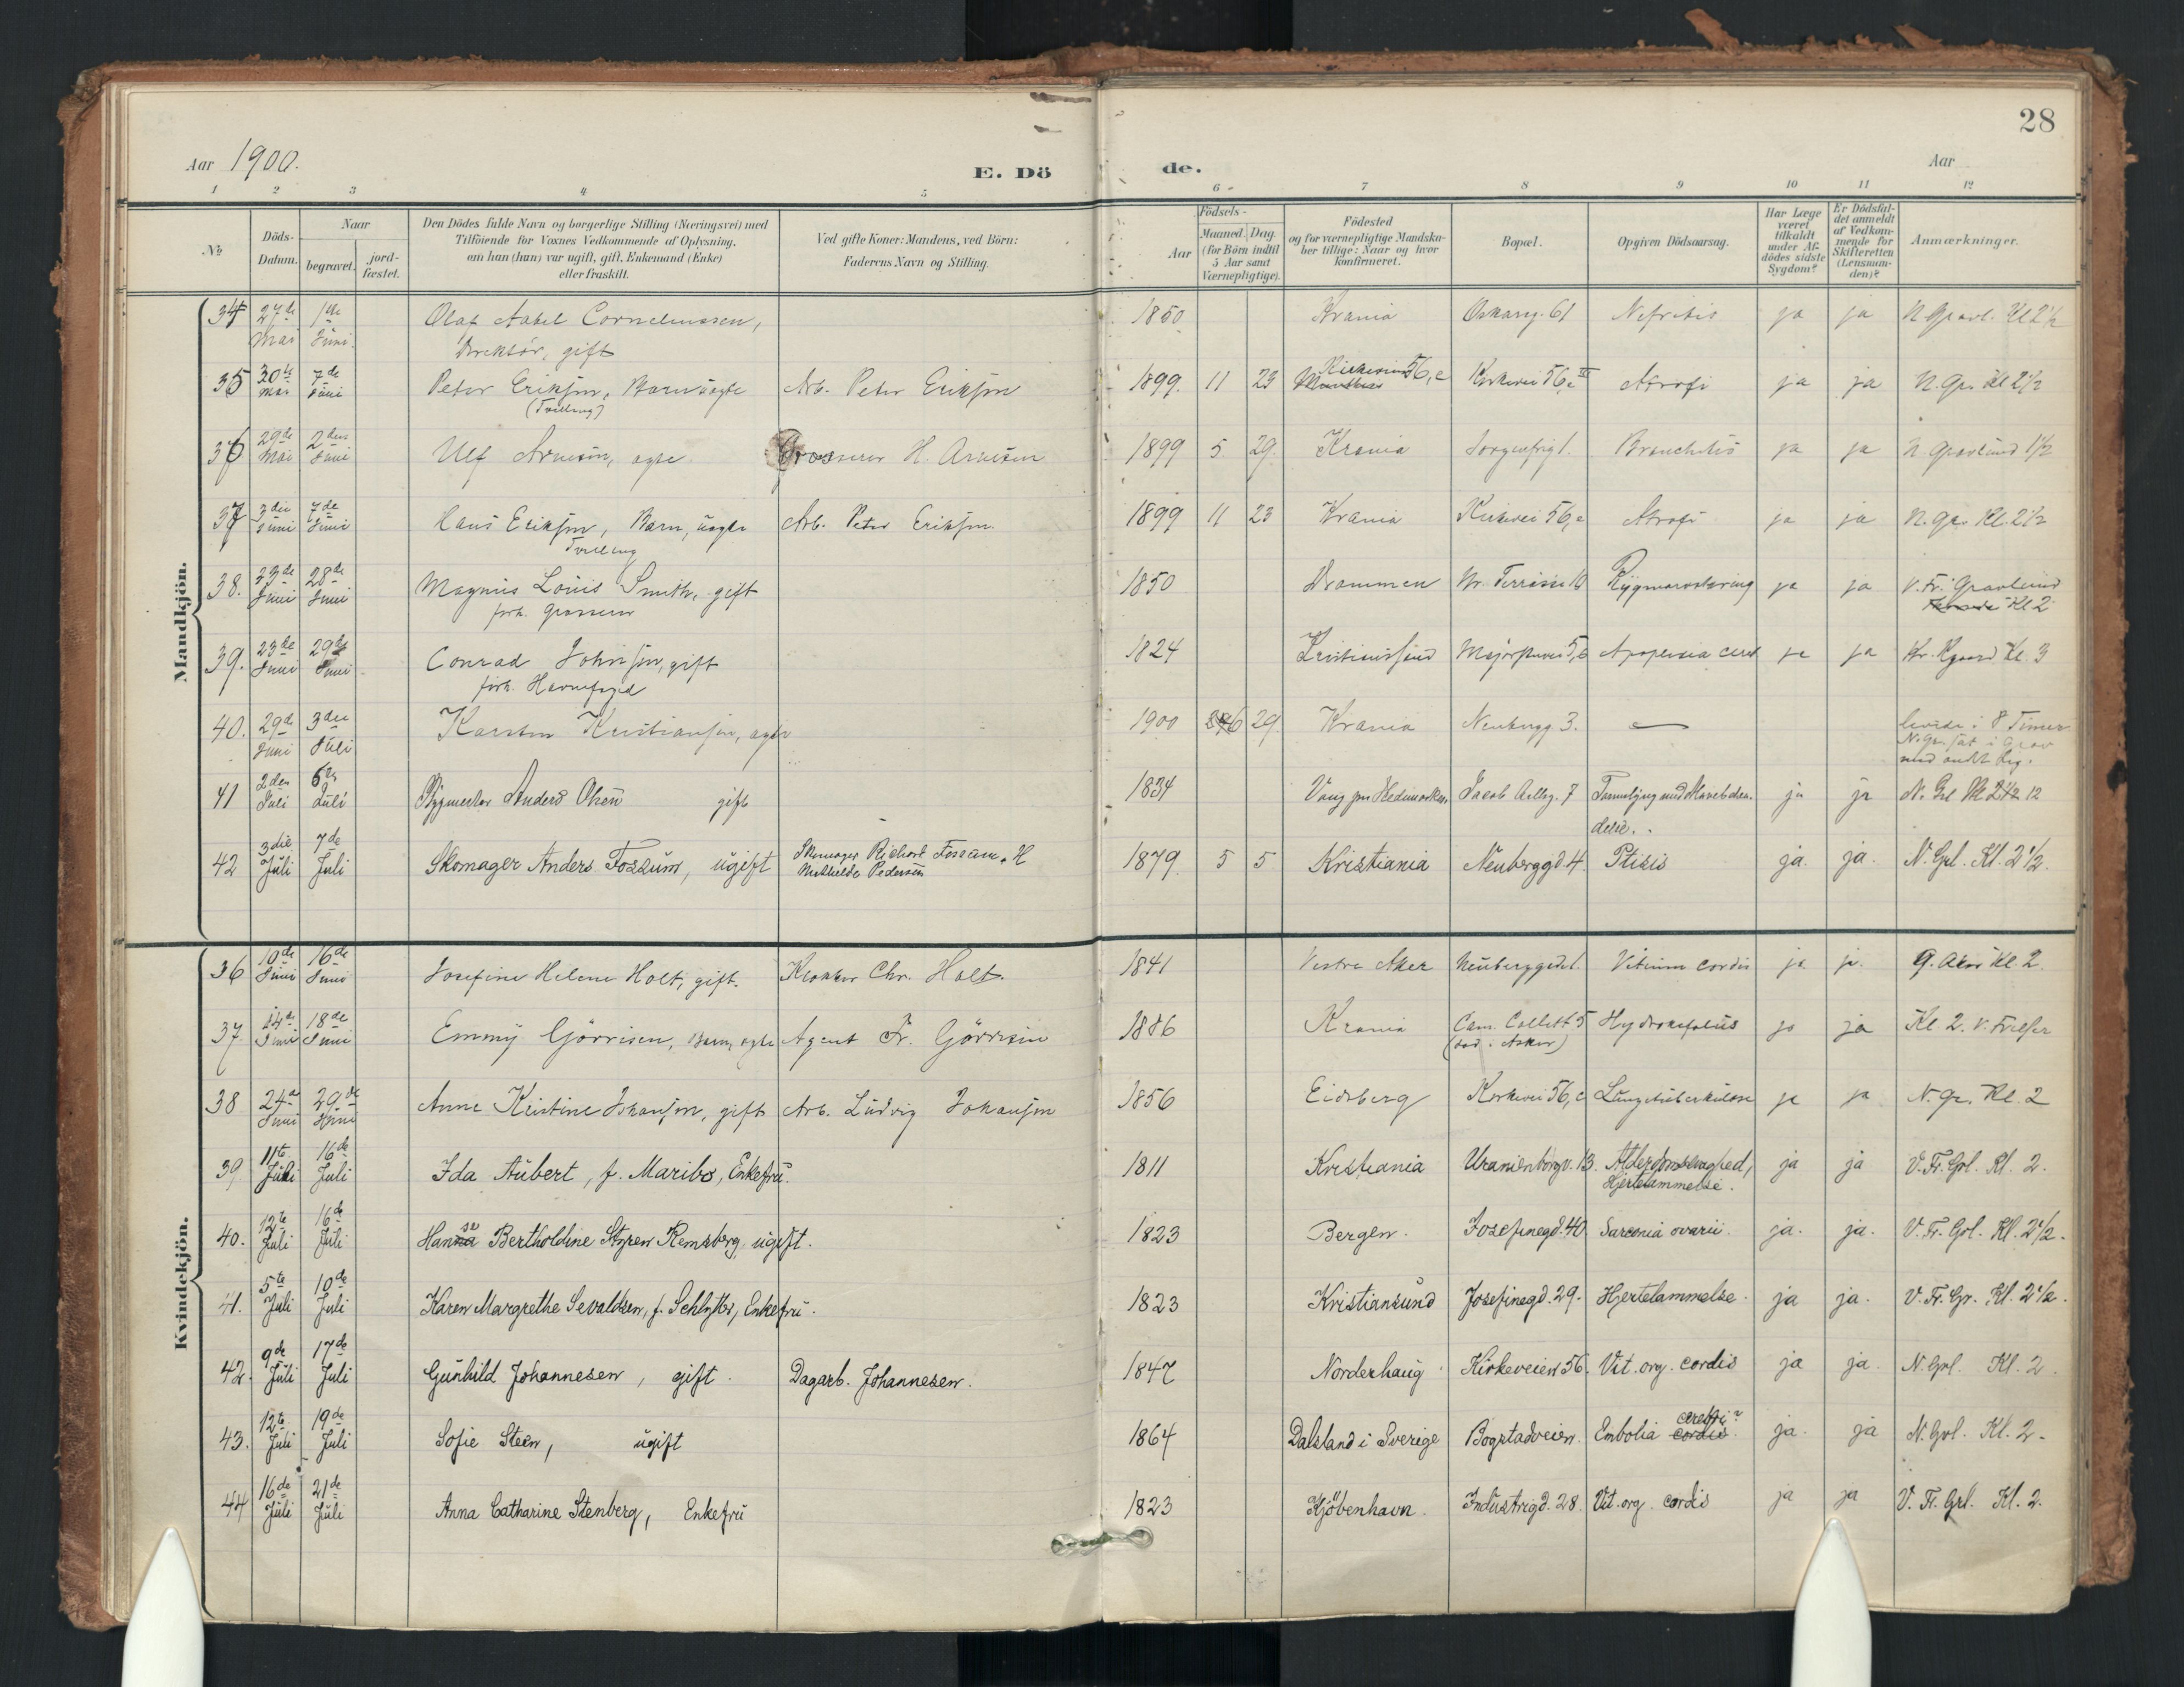 28
Aar 1900. E. Dö de. Aar
1 2 3 4 5 6 7 8 9 10 11 12
No.
Döds-Datum.
Naar
begravet.
jord-fæstet.
Den Dödes fulde Navn og borgerlige Stilling (Næringsvei) med
Tilföiende for Voxnes Vedkommende af Oplysning,
om han (hun) var ugift, gift, Enkemand (Enke)
eller fraskilt.
Ved gifte Koner: Mandens, ved Börn:
Faderens Navn og Stilling.
Födsels-
Aar
Maaned. Dag.
(for Börn indtil
5 Aar samt
Værnepligtige).
Födested
og for værnepligtige Mandska-
ber tillige: Naar og hvor
konfirmeret.
Bopæl.
Opgiven Dödsaarsag.
Har Læge
været
tilkaldt
under Af-
dödes sidste
Sygdom?
Er Dödsfal-
det anmeldt
af Vedkom-
mende for
Skifteretten
(Lensman-
den)?
Anmærkninger.
Mandkjön.
34 27de Mai 1ste Juni Olaf Aabel Corneliussen, 1850 Krania Oskarsg. 61 Nefritis ja ja N. Gravl. Kl 2½
Direktör, gift
35 30te Mai 7de Juni Peter Eriksen, Barn uægte Arb. Peter Eriksen 1899. 11 23 Kirkeveien 56,c Kirkevei 56,c III Atrofi ja ja N. Gr. Kl 2½
(Tvilling)
36 29de Mai 2den Juni Ulf Arnesen, ægte Grosserer H. Arnesen 1899 5 29. Krania Sorgenfrig 1. Bronchitis ja ja N. Gravlund 1½
37 3die Juni 7de Juni Hans Eriksen, Barn, uægte Arb. Peter Eriksen 1899 11 23 Krania Kirkevei 56,c Atrofi ja ja N. Gr. Kl. 2½
Tvilling
38. 23de Juni 28de Juni Magnus Louis Smith, gift 1850 Drammen Rygmarvstæring ja ja V. Fr. Gravlund
forh. Grosserer Kl 2
39. 23de Juni 29de Juni Conrad Johnsen, gift 1824 Kristiansund Majorstuvei 5,b Apopexia cereb ja ja Kr. Kgaard Kl. 3
forh. Havnefoged
40. 29de Juni 3die Juli Karsten Kristiansen, ægte 1900 6 29. Krania Neubergg 3. — levede i 8 Timer
N. Gr. sat i Grav
med andet Lig.
41 2den Juli 6te Juli Bygmester Anders Olsen gift 1834 Vang paa Hedemarken Jacob Aallsg. 7 Tarmslyng med Mavebetæn. ja ja N. Grl Kl 2½ 12
delse.
42 3die Juli 7de Juli Skomager Anders Fossum, ugift Skomager Richart Fossum & H 1879. 5 5 Kristiania Neuberggd. 4. Ptisis ja. ja. N. Grl. Kl. 2½.
Mathilde Pedersen
Kvindekjön.
36 10de Juni 16de Juni Josefine Helene Holt, gift. Kirketer Chr. Holt. 1841 Vestre Aker Neuberggad 1. Vitium cordis ja ja. G. Aker Kl 2.
37. 14de Juni 18de Juni Emmy Görrisen, Barn, ægte Agent Fr. Görrisen 1886 Krania Cam. Collett 5 Hydrokefalus ja ja Kl 2. V. Frelser
(död i Asker)
38 24de Juni 29de Juni Anne Kristine Johansen, gift Arb. Ludvig Johansen 1856 Eidsberg Kirkevei 56,c Lungetuberkulose ja ja N. Gr. Kl. 2
39 11te Juli 16de Juli Ida Aubert, f. Maribo, Enkefru. 1811 Kristiania Uranienborgv. 13. Alderdomssvaghed, ja ja V. Fr. Grl. Kl. 2.
Hjertelammelse.
40. 12te Juli 16de Juli Hanna se Bertholdine Styren Remsberg, ugift. 1823 Bergen. Josefinegd. 40 Sarconia ovarii. ja. ja. V. Fr. Grl. Kl. 2½.
41. 5te Juli 10de Juli Karen Margrethe Sevaldsen, f. Schlytter, Enkefru. 1823 Kristiansund Josefinegd. 29. Hjertelammelse. ja ja. V. Fr. Gr. Kl. 2½.
42. 9de Juli 17de Juli Gunhild Johannesen, gift. Dagarb. Johannesen. 1847 Norderhaug Kirkeveien 56. Vit. org. cordis ja ja. N. Grl. Kl. 2.
43. 12te Juli 19de Juli Sofie Steen, ugift 1864 Dalsland i Sverige Bogstadveien. Embolia cordis. cerebri ja. ja N. Grl. Kl. 2.
44 16de Juli 21de Juli Anna Catharine Stenberg, Enkefru 1823 Kjöbenhavn. Industrigd. 28. Vit. org. cordis ja ja V. Fr. Grl. Kl. 2.